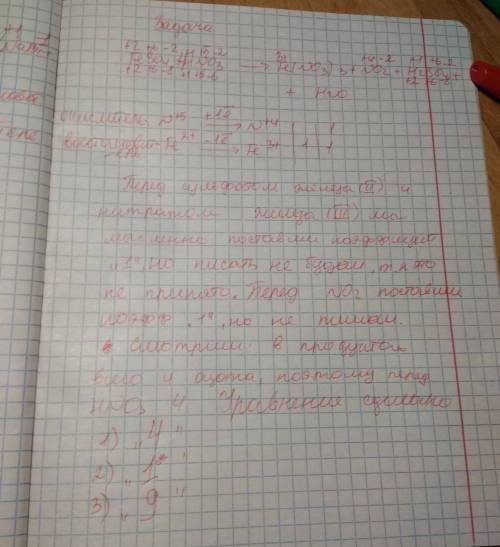 Задача
+2 +6 -2 +1 +5 -2
FeSO4 + HNO3 → Fe(NO3)3 + NO2 + H2SO4 +
+ H2O
окислитель N+5 +1e → N+4 | 1
Fe2+ -1e → Fe3+ | 1 | 1
Перед сульфатом железа (II) и
нитратом железа (III) мы
мысленно поставим коэффициент
„1", но писать не будем, т к это
не принято. Перед NO2 поставим
коэфф „1", но не пишем.
Смотрим: в продуктах
всего 4 азота, поэтому перед
HNO3 4. Уравнение
1) „4"
2) „1"
3) „9"